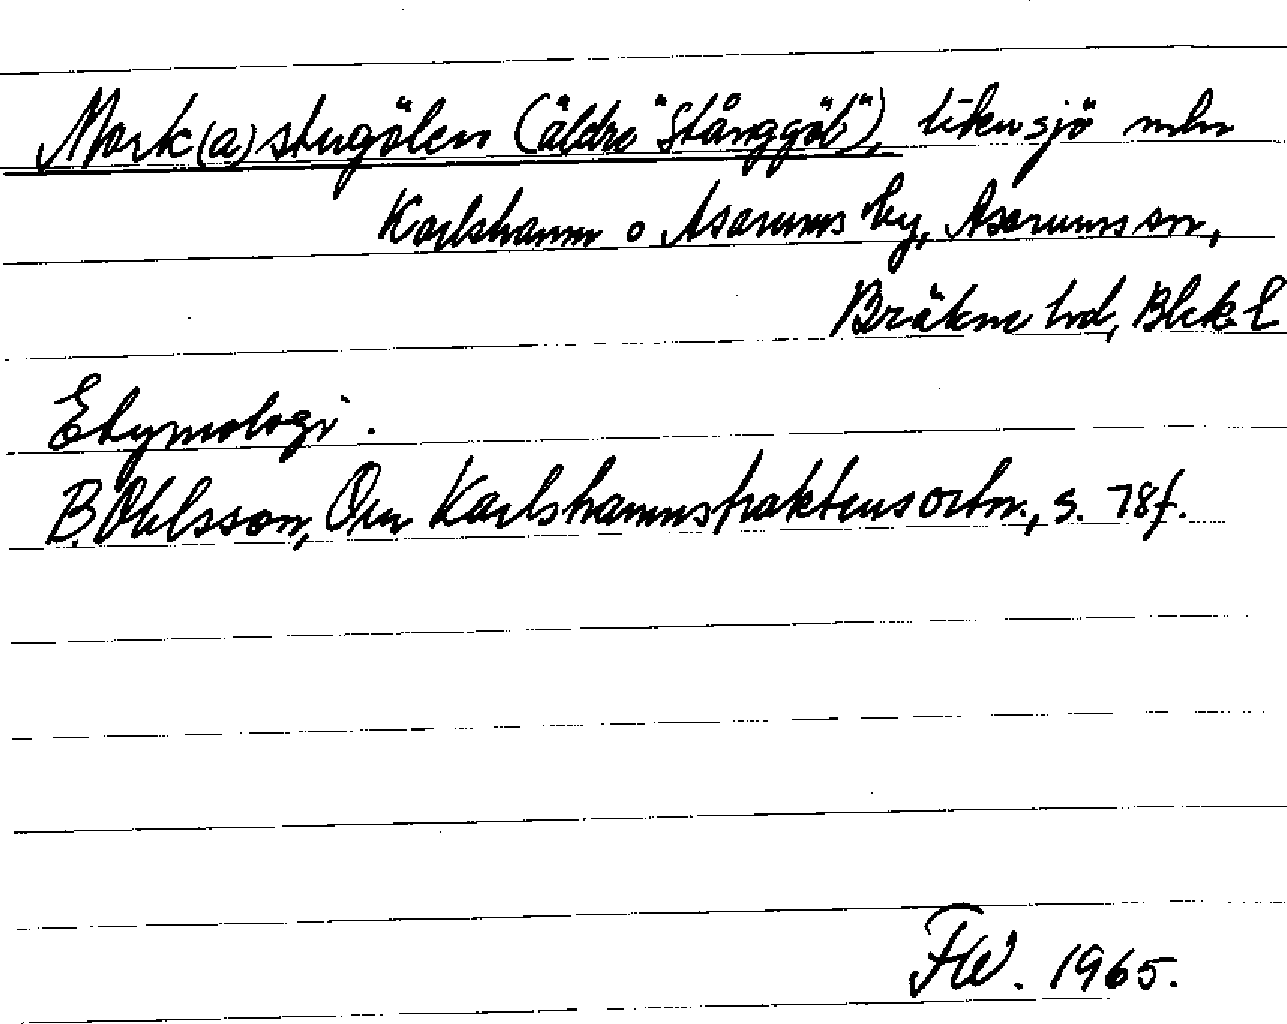 Mork(a)stugölen (äldre "Stånggöl"), liten sjö mln
Karlshamn o Asarums by, Asarums sn,
Bräkne hd, Blek. l
Etymologi.
B. Ohlsson, Om Karlshamnstraktens ortn., s. 78f.
FW. 1965.